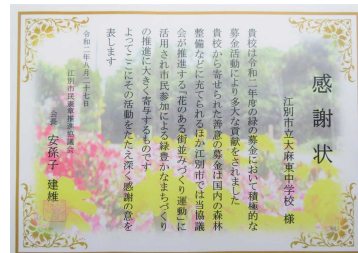 感謝状
江別市立大麻東中学校 様
貴校は令和二年度の緑の募金において積極的な
募金活動により多大な貢献をされました
貴校から寄せられた善意の募金は国内の森林
整備などに充てられるほか江別市では当協議
会が推進する「花のある街並みづくり運動」に
活用され市民参加による緑豊かなまちづくり
の推進に大きく寄与するものです
よってここにその活動をたたえ深く感謝の意を
表します
令和二年八月二十七日
江別市民憲章推進協議会
会長 安孫子 建雄